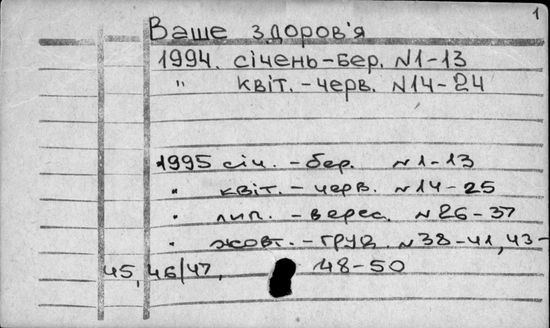 1
Ваше здоров'я
1994. січень-бер. N1-13
" квіт.-черв. N14-24
1995 січ. -бер. N1-13
" квіт.-черв. N14-25
" лип. -верес. N26-37
" жовт.-груд. N38-41, 43-
45, 46/47, 48-50